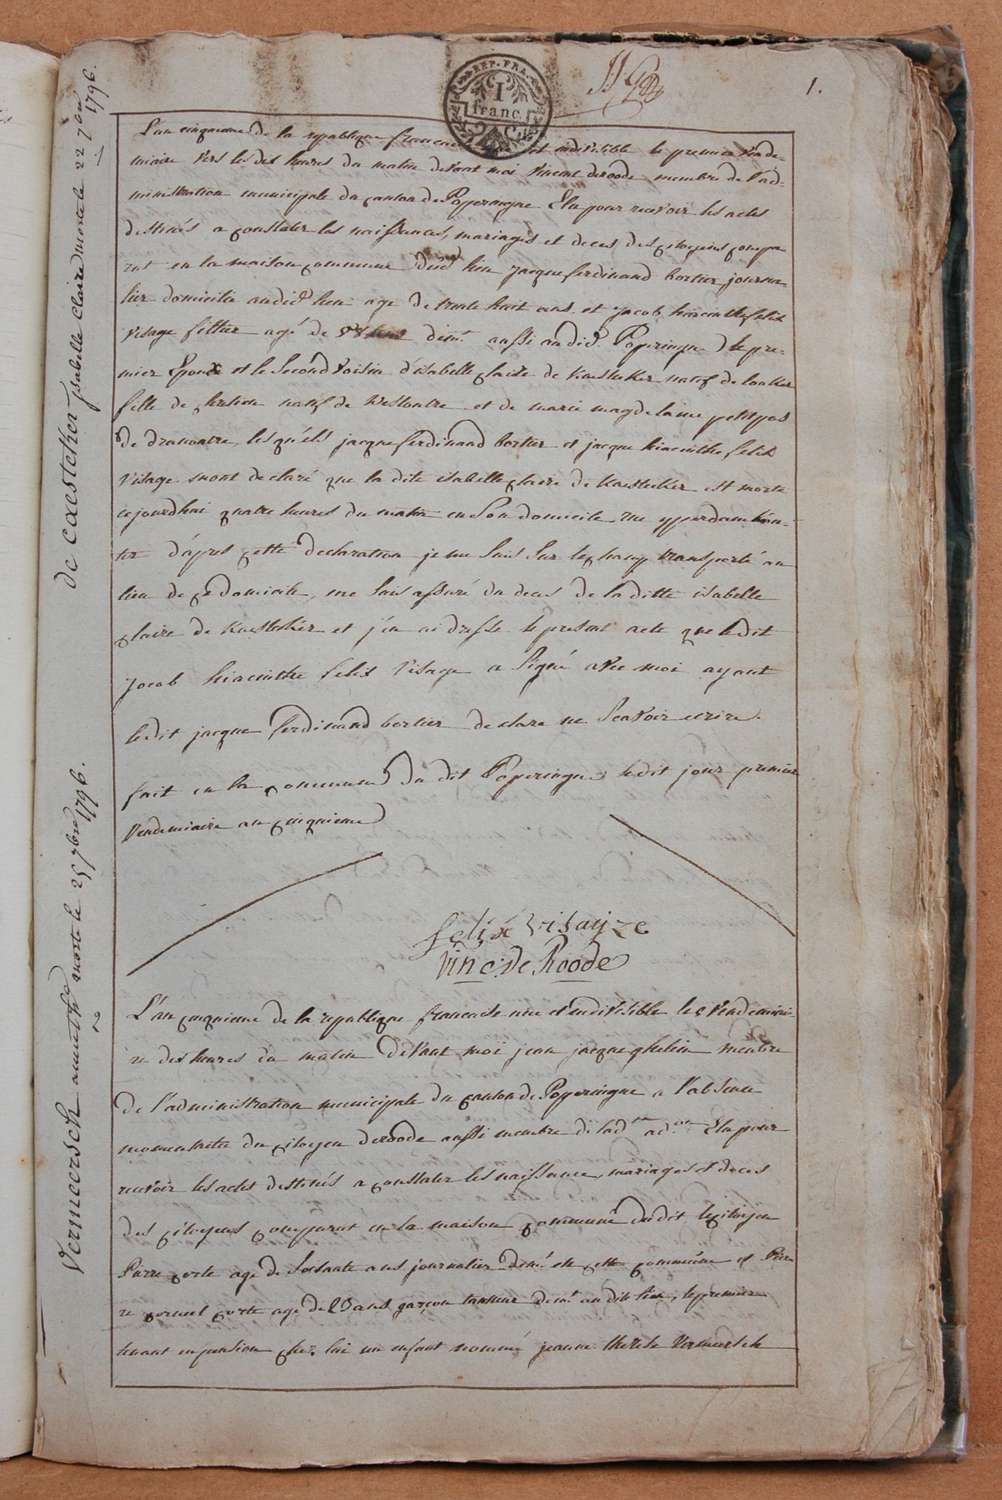 1.
REP. FRA.
I
franc
de Caesteker isabelle Claire morte le 22 7bre 1796.
L'an cinquieme de la republique francaise indivisible le premier vende-
miaire vers les dix heures du matin devant moi vincent deroode membre de l'ad-
ministration municipale du canton de Poperingue Elu pour recevoir les actes
destinés a constater les naissances, mariages et deces des citoyens compa
rut en la maison commune dudt lieu jacque ferdinand bortier journa-
lier domicilié audit lieu age de trente huit ans et jacob hiacinthe felix
visage agé de ans demt aussi audit Poperingue le pre-
mier Epoux et le Second voisin d'isabelle claire de Kaesteker natif de
fille de natif de Westoutre et de marie magdelaine petitpas
de dranoutre lesquels jacque ferdinand bortier et jacque hiacinthe felix
visage mont declaré que la dite isabelle claire de Kaesteker est morte
cejourdhui quatre heures du matin en Son domicile rue
d'apres cette declaration je me Suis Sur le champ transporté au
lieu de ce domicile, me Suis assuré du deces de la ditte isabelle
claire de Kaesteker et j'en ai dressé le present acte que ledit
jacob hiacinthe felix visage a Signé avec moi ayant
ledit jacque ferdinand bortier declare ne Scavoir ecrire.
fait en la commune du dit Poperingue ledit jour premier
vendemiaire an cinquieme
felix visayze
vinc: de Roode
Vermeersch morte le 25 7bre 1796.
2
L'an cinquieme de la republique francaise une et indivisible le 4 vendemiai-
re dix heures du matin devant moi jean jacque ghelein membre
de l'administration municipale du canton de Poperingue a l'absence
momentanée du citoyen deroode aussi membre de ladte adon Elu pour
recevoir les actes destinés a constater les naissance, mariages et deces
des citoyens comparut en la maison commune dudit le citoyen
Pierre corte age de Soixante ans journalier demt en cette commune et Pier
re corneil corte age de 25 ans garçon tanneur demt au dit lieu, le premier
tenant en pension chez lui un enfant nommé jeanne therese vermeersch